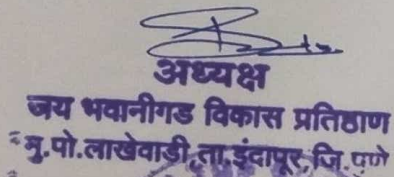 अध्यक्ष
जय भवानीगड विकास प्रतिष्ठाण
मु.पो.लाखेवाडी,ता.इंदापूर,जि.पुणे